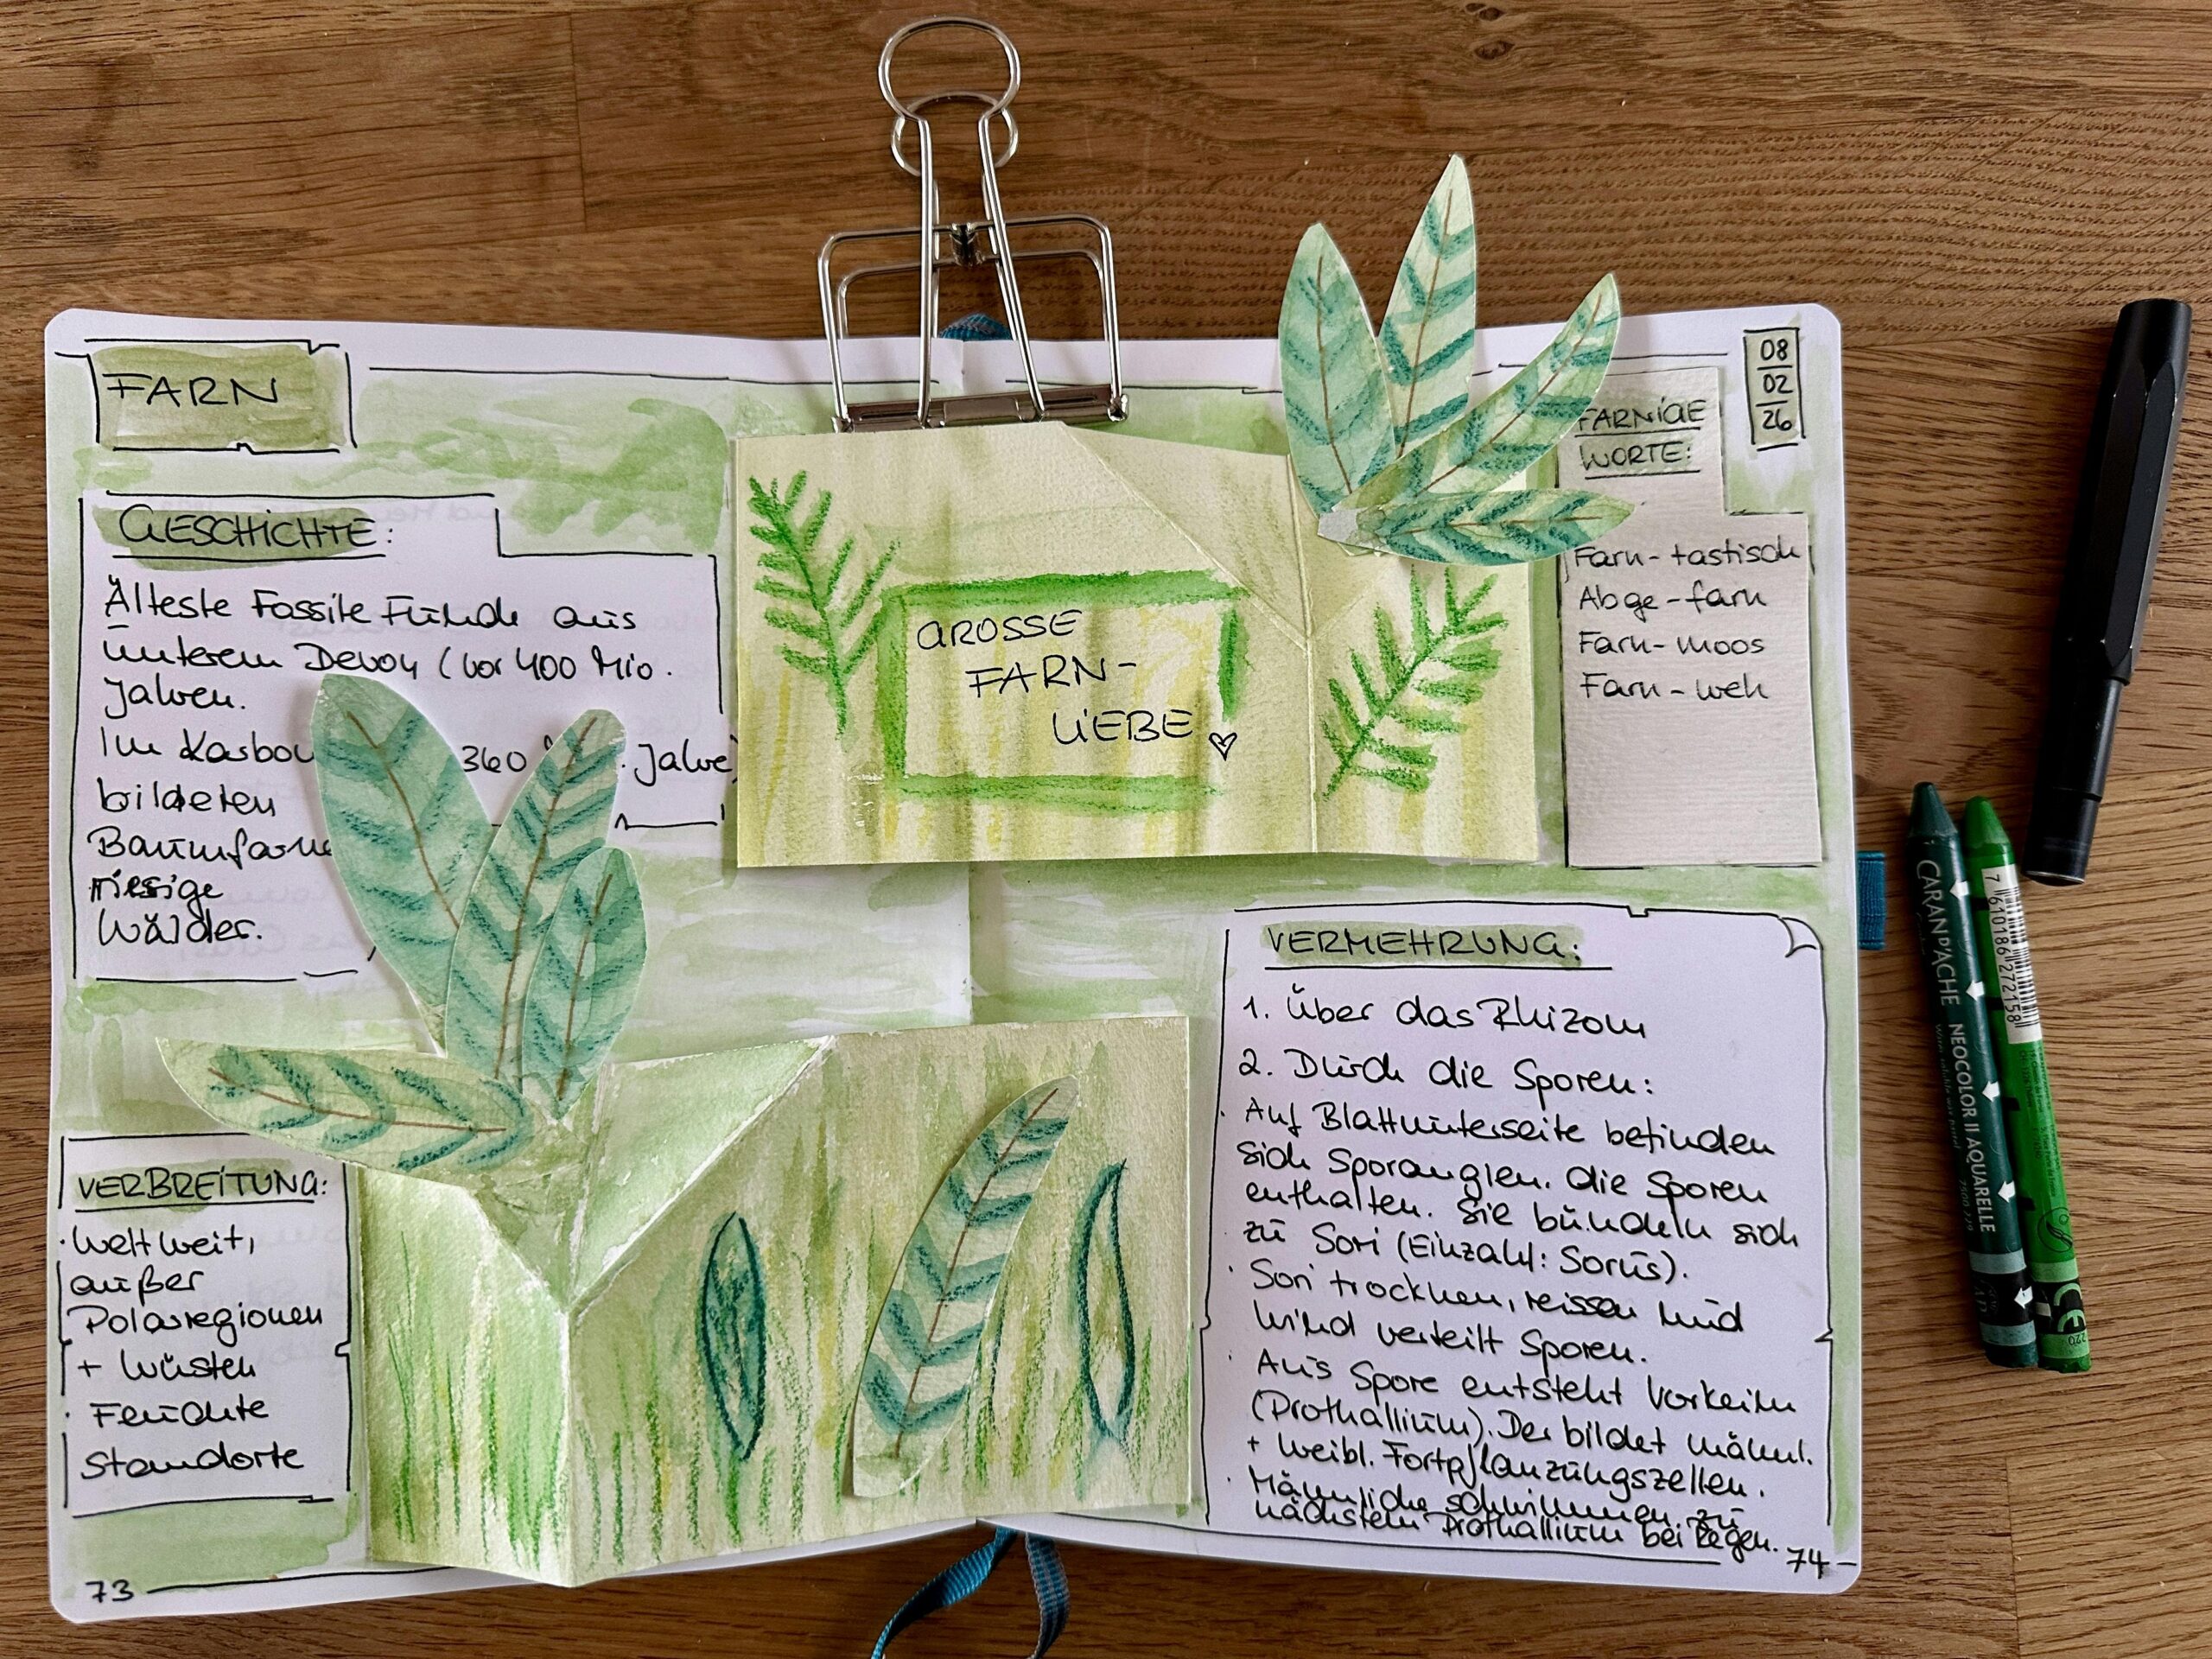 FARN
GESCHICHTE:
Älteste Fossile Funde aus
unterem Devon (vor 400 Mio.
Jahren.
Im Karbon 360 Jahre)
bildeten
Baumfarne
riesige
Wälder.
VERBREITUNG:
· Weltweit,
außer
Polarregionen
+ Wüsten
· Feuchte
Standorte
73
GROSSE
FARN-
LIEBE
08
02
26
FARNIGE
WORTE:
Farn-tastisch
Abge-farn
Farn-moos
Farn-weh
VERMEHRUNG:
1. Über das Rhizom
2. Durch die Sporen:
· Auf Blattunterseite befinden
sich Sporangien. die Sporen
enthalten. Sie bündeln sich
zu Sori (Einzahl: Sorus).
· Sori trocknen, reissen und
Wind verteilt Sporen.
· Aus Spore entsteht Vorkeim
(Prothallium). Der bildet männl.
+ weibl. Fortpflanzungszellen.
· Männliche schwimmen zu
nächstem Prothallium bei Regen.
74
CARAN D'ACHE NEOCOLOR II AQUARELLE
7 610186 272158
220